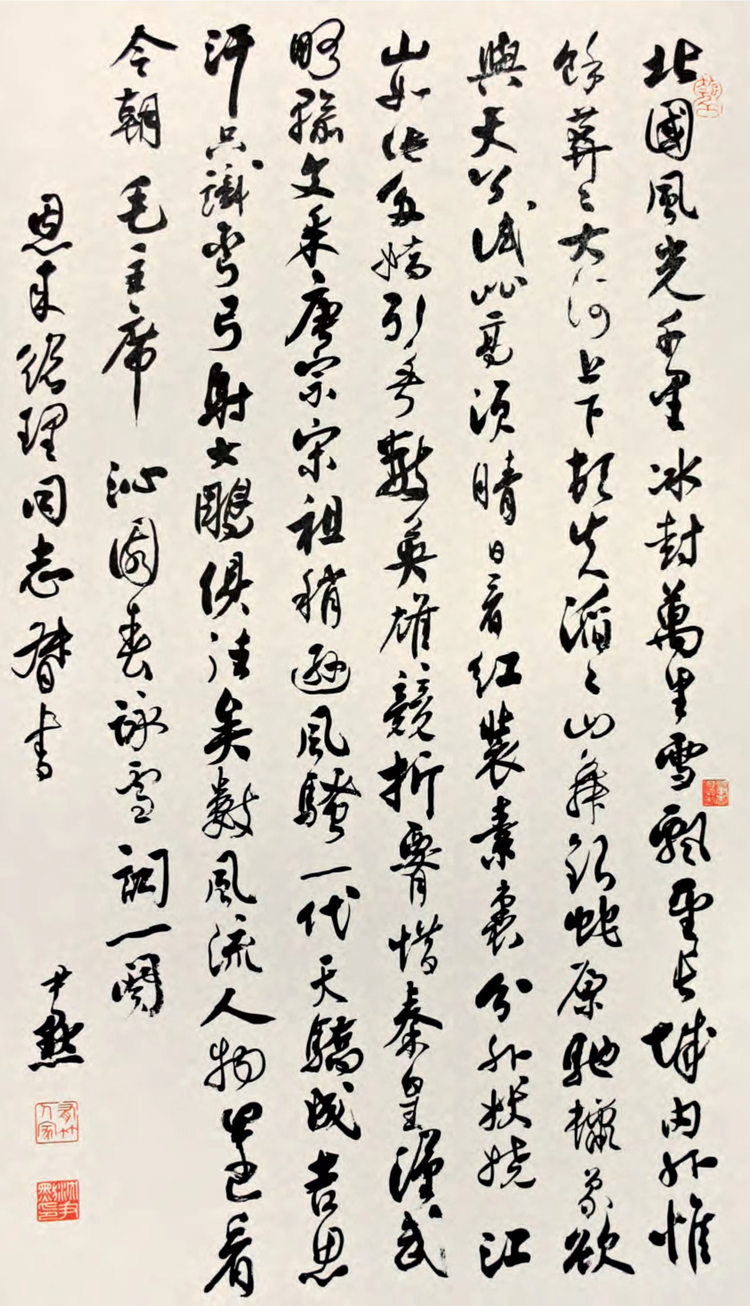 北國風光千里冰封萬里雪飄望長城內外惟
餘莽々大河上下頓失滔々山舞銀蛇原馳蠟象欲
與天公試比高須晴日看紅裝素裹分外妖嬈江
山如此多嬌引無數英雄競折腰惜秦皇漢武
略輸文采唐宗宋祖稍遜風騷一代天驕成吉思
汗只識彎弓射大鵰俱往矣數風流人物還看
今朝 毛主席 沁園春詠雪詞一闋
恩來總理同志督書 尹默
有竹人家
沈尹默印